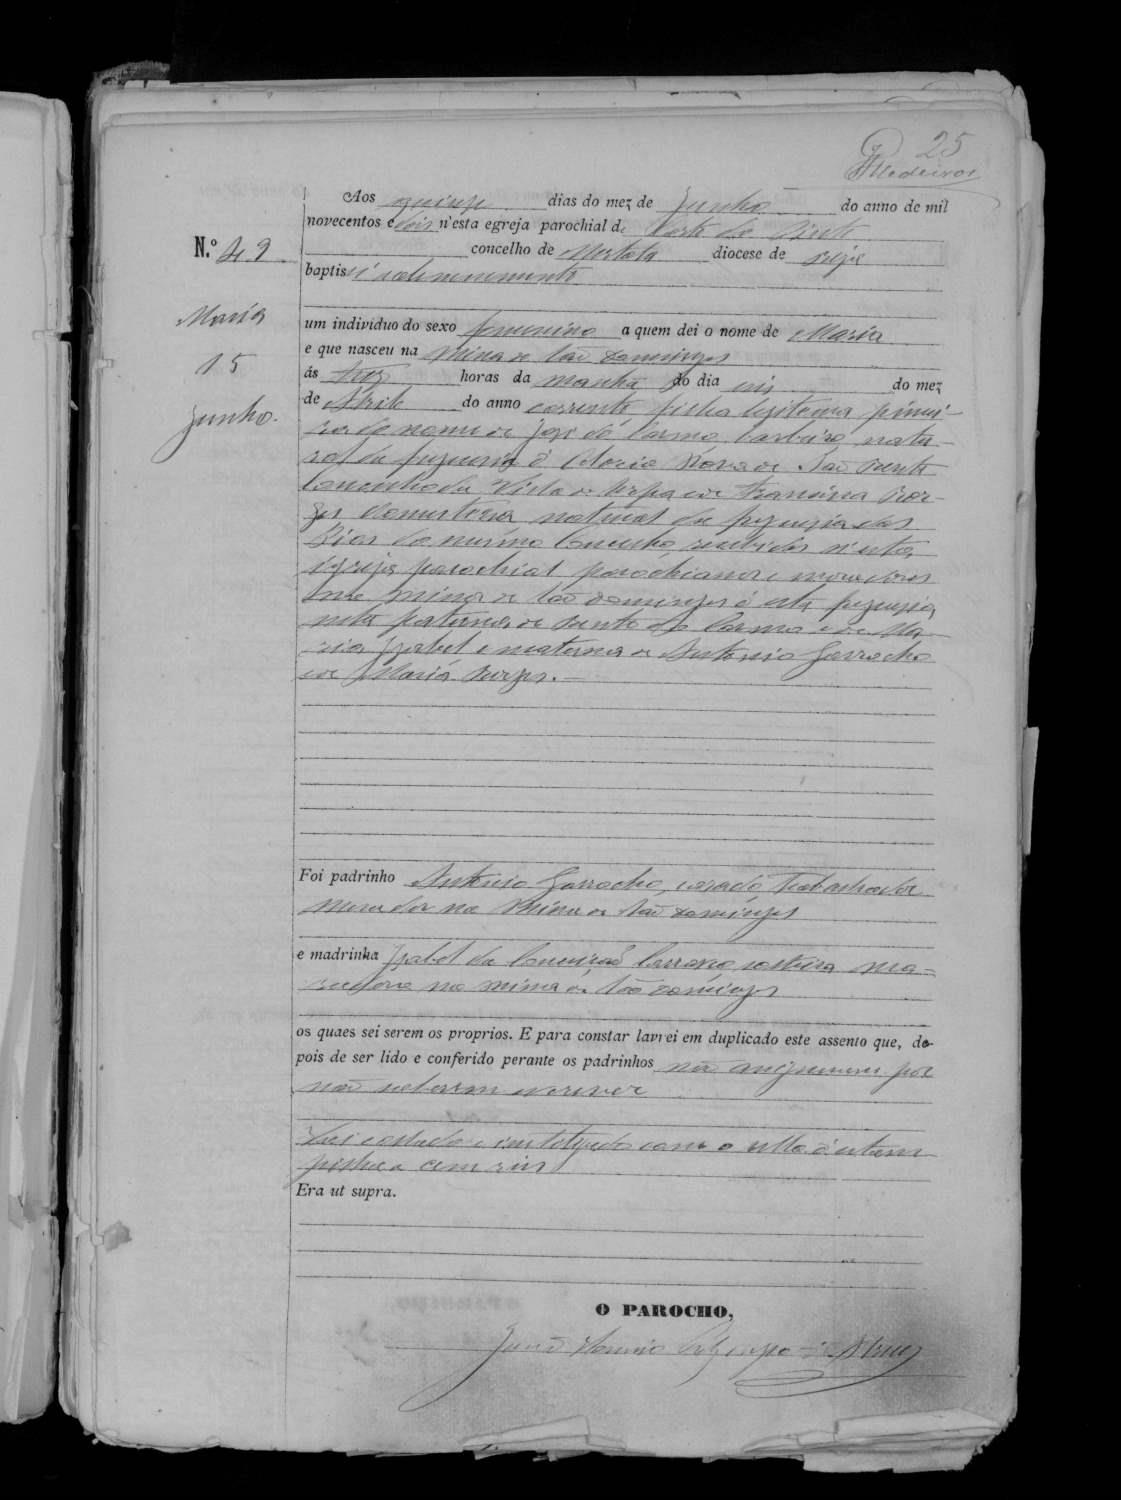 25
Medeiros
Aos quinze dias do mez de Junho do anno de mil
novecentos e dois n'esta egreja parochial de Corte do Pinto
N.º 49
concelho de Mertola diocese de Beja
baptisei solemnemente
Maria
um individuo do sexo femenino a quem dei o nome de Maria
e que nasceu na Mina de São Domingos
15
ás trez horas da manhã do dia seis do mez
de Abril do anno corrente filha legitima primei-
Junho.
ra do nome de José do Carmo, barbeiro, natu-
ral da freguezia d'Aldeia Nova de São Bento
Concelho da Villa de Serpa e de Francisca Bor-
ges domestica natural da freguezia das
Pias do mesmo Concelho, recebidos n'esta
igreja parochial parochianos e moradores
na Mina de São Domingos d'esta freguezia,
neta paterna de Bento do Carmo e de Ma-
ria Izabel e materna de Antonio Garrocho
e de Maria Borges. —
Foi padrinho Antonio Garrocho, casado, trabalhador
morador na Mina de São Domingos
e madrinha Izabel da Conceição costureira mo-
radora na Mina de São Domingos
os quaes sei serem os proprios. E para constar lavrei em duplicado este assento que, de-
pois de ser lido e conferido perante os padrinhos não assignaram por
não saberem escrever
e inutilisado com o sello d'estam
pilha de cem reis
Era ut supra.
O PAROCHO,